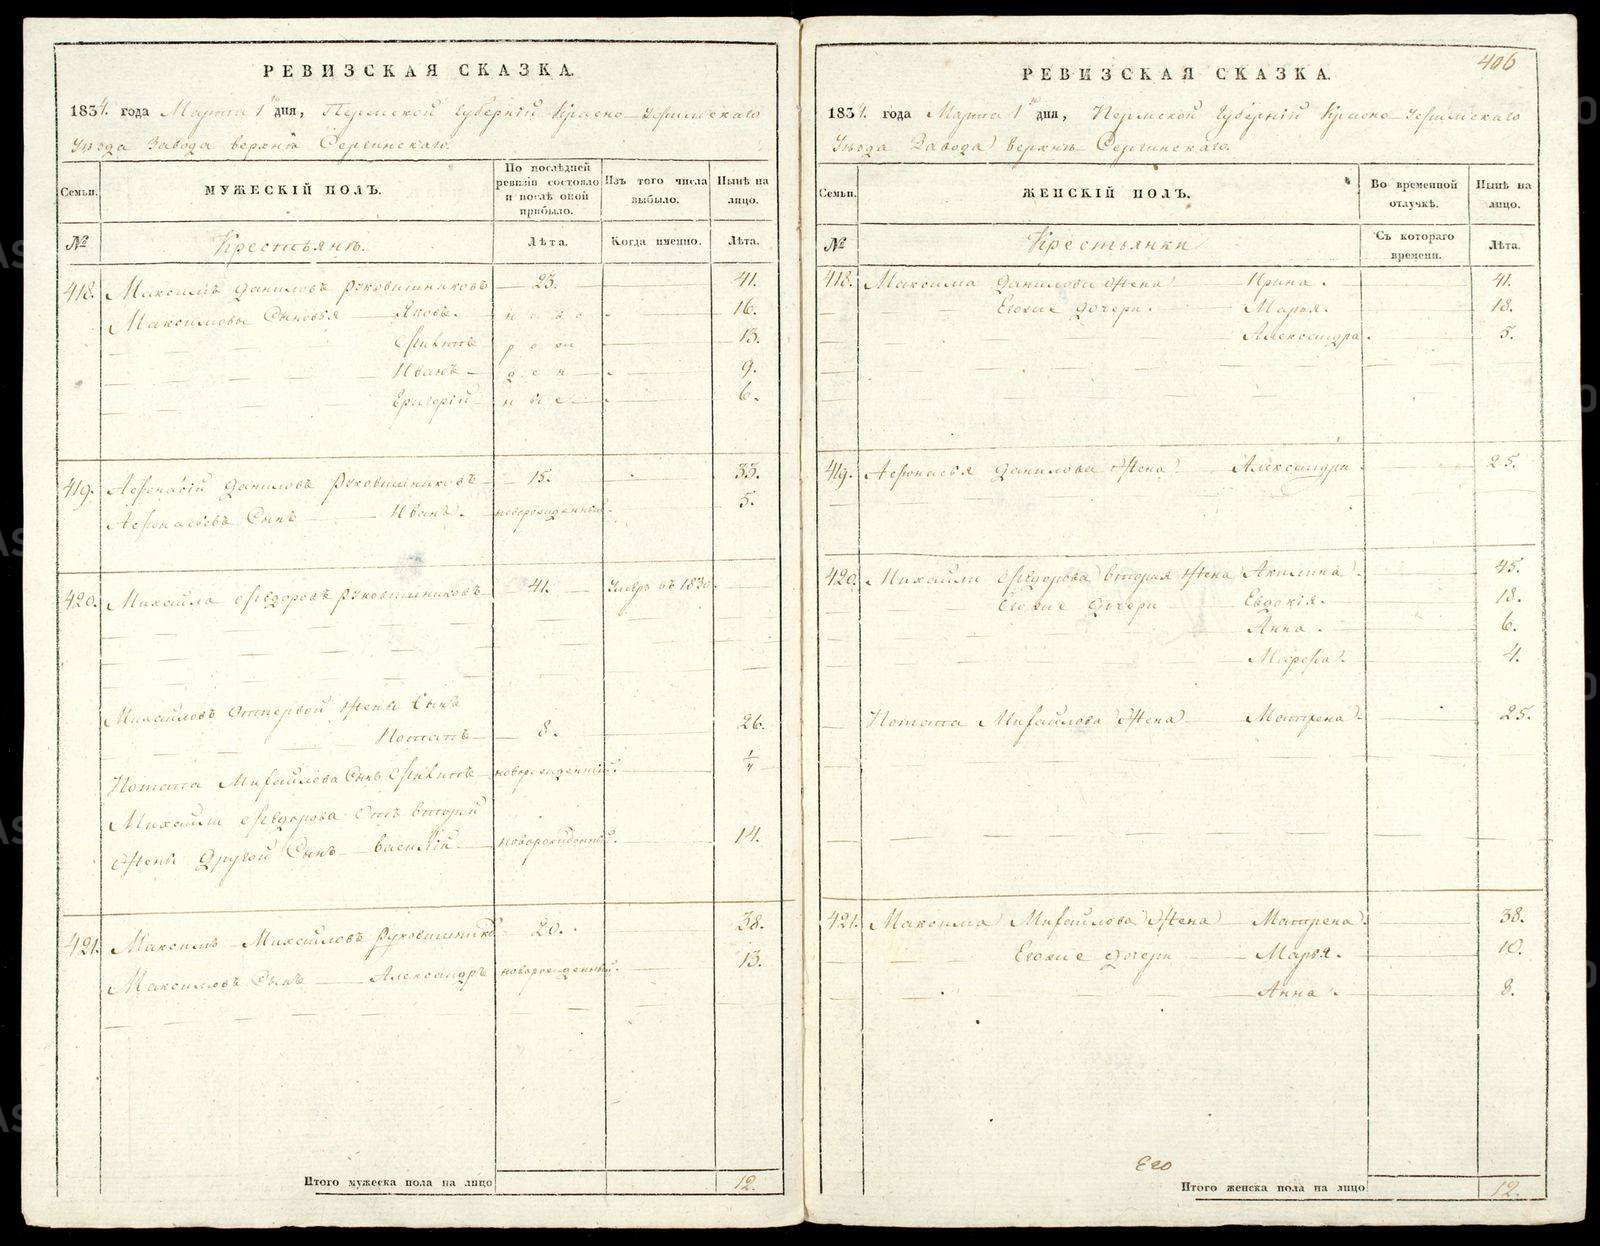 РЕВИЗСКАЯ СКАЗКА.
1834. года Марта 1 дня, Пермской Губерніи Красно-Уфимскаго
Уѣзда Завода верхнѣ Сергинскаго.
Семьи.
МУЖЕСКІЙ ПОЛЪ.
По послѣдней ревизіи состояло и послѣ оной прибыло.
Изъ того числа выбыло.
Нынѣ на лицо.
№
Крестьянѣ.
Лѣта.
Когда именно.
Лѣта.
418. Максимъ Даниловъ Руковишниковъ 23. 41.
Максимовы Сыновья Яковъ. ново 16.
Филипъ рож 13.
Иванъ ден 9.
Григорій ные 6.
419. Афонасій Даниловъ Руковишниковъ 15. 33.
Афонасьевъ Сынъ Иванъ. новорожденный. 5.
420. Михайла Федоровъ Руковишниковъ 41. Умеръ въ 1830.
Михайловъ Отпервой Жены Сынъ
Потапъ 8. 26.
Потапа Михайлова Сынъ Филипъ новорожденный.
Михайли Федорова Отъ второй
Жены Другой Сынъ Василій новорожденный. 14.
421. Максимъ Михайловъ Руковишнико 20. 38.
Максимовъ Сынъ Александръ новорожденный. 13.
Итого мужеска пола на лицо 12.
406
РЕВИЗСКАЯ СКАЗКА.
1834. года Марта 1 дня, Пермской Губерніи Красно-Уфимскаго
Уѣзда Завода верхнѣ-Сергинскаго.
Семьи.
ЖЕНСКІЙ ПОЛЪ.
Во временной отлучкѣ.
Нынѣ на лицо.
№
Крестьянки
Съ котораго времени.
Лѣта.
418. Максима Данилова Жена Ирина. 41.
Егожие дочери. Марья. 18.
Александра. 5.
419. Афонасья Данилова Жена Александра. 25.
420. Михайли Федорова вторая Жена Акилина. 45.
Егожие дочери Евдокія. 18.
Анна. 6.
Марфа. 4.
Потапа Михайлова Жена Матрена. 25.
421. Максима Михайлова Жена Матрена. 38.
Егожие дочери Марья. 10.
Анна. 8.
Его
Итого женска пола на лицо 12.